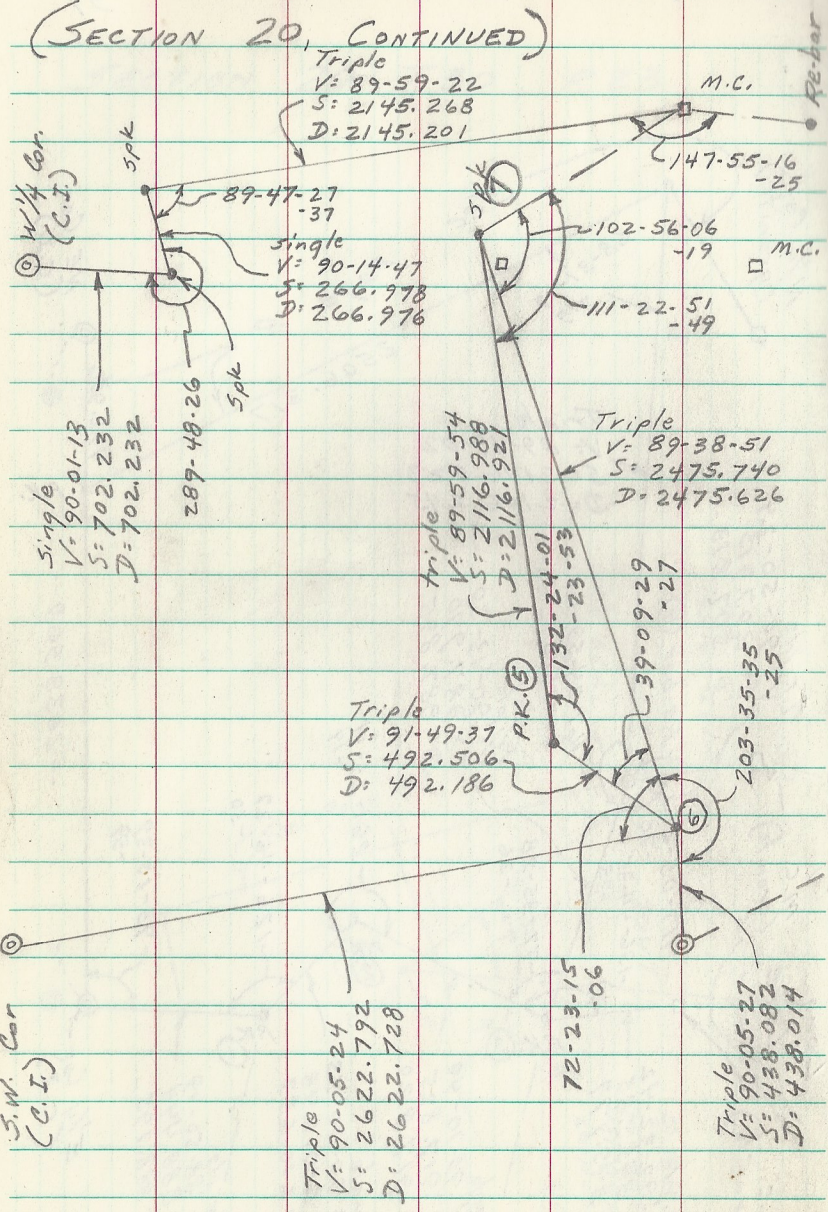 (SECTION 20, CONTINUED)
Triple
V= 89-59-22
S= 2145.268
D= 2145.201
M.C.
Re-bar
Spk
147-55-16
-25
W 1/4 Cor.
(C.I.)
89-47-27
-37
Spk 7
102-56-06
-19
M.C.
single
V= 90-14-47
S= 266.978
D= 266.976
111-22-51
-49
Spk
289-48-26
Single
V= 90-01-13
S= 702.232
D= 702.232
Triple
V= 89-38-51
S= 2475.740
D= 2475.626
triple
V= 89-59-54
S= 2116.988
D= 2116.921
132-24-01
-23-53
39-09-29
-27
203-35-35
-25
P.K. 5
Triple
V= 91-49-37
S= 492.506
D= 492.186
6
72-23-15
-06
S.W. Cor
(C.I.)
Triple
V= 90-05-24
S= 2622.792
D= 2622.728
Triple
V= 90-05-27
S= 438.082
D= 438.014